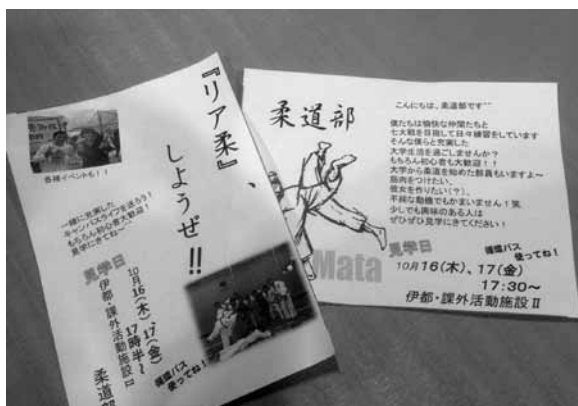 『リア柔』、
しようぜ!!
各種イベントも!!
一緒に充実した
キャンパスライフを送ろう!
もちろん初心者大歓迎!
見学にきてね~^^
見学日
10月16(木)、17(金)
17時半~
伊都・課外活動施設Ⅱ
循環バス
使ってね!
柔道部
柔道部
こんにちは、柔道部です^^
僕たちは愉快な仲間たちと
七大戦を目指して日々練習をしています
そんな僕らと充実した
大学生活を過ごしませんか?
もちろん初心者も大歓迎!!
大学から柔道を始めた部員もいますよ~
筋肉をつけたい、
彼女を作りたい(?)、
不純な動機でもかまいません!笑
少しでも興味のある人は
ぜひぜひ見学にきてください!
Mata
見学日
循環バス
使ってね!
10月16(木)、17(金)
17:30~
伊都・課外活動施設Ⅱ